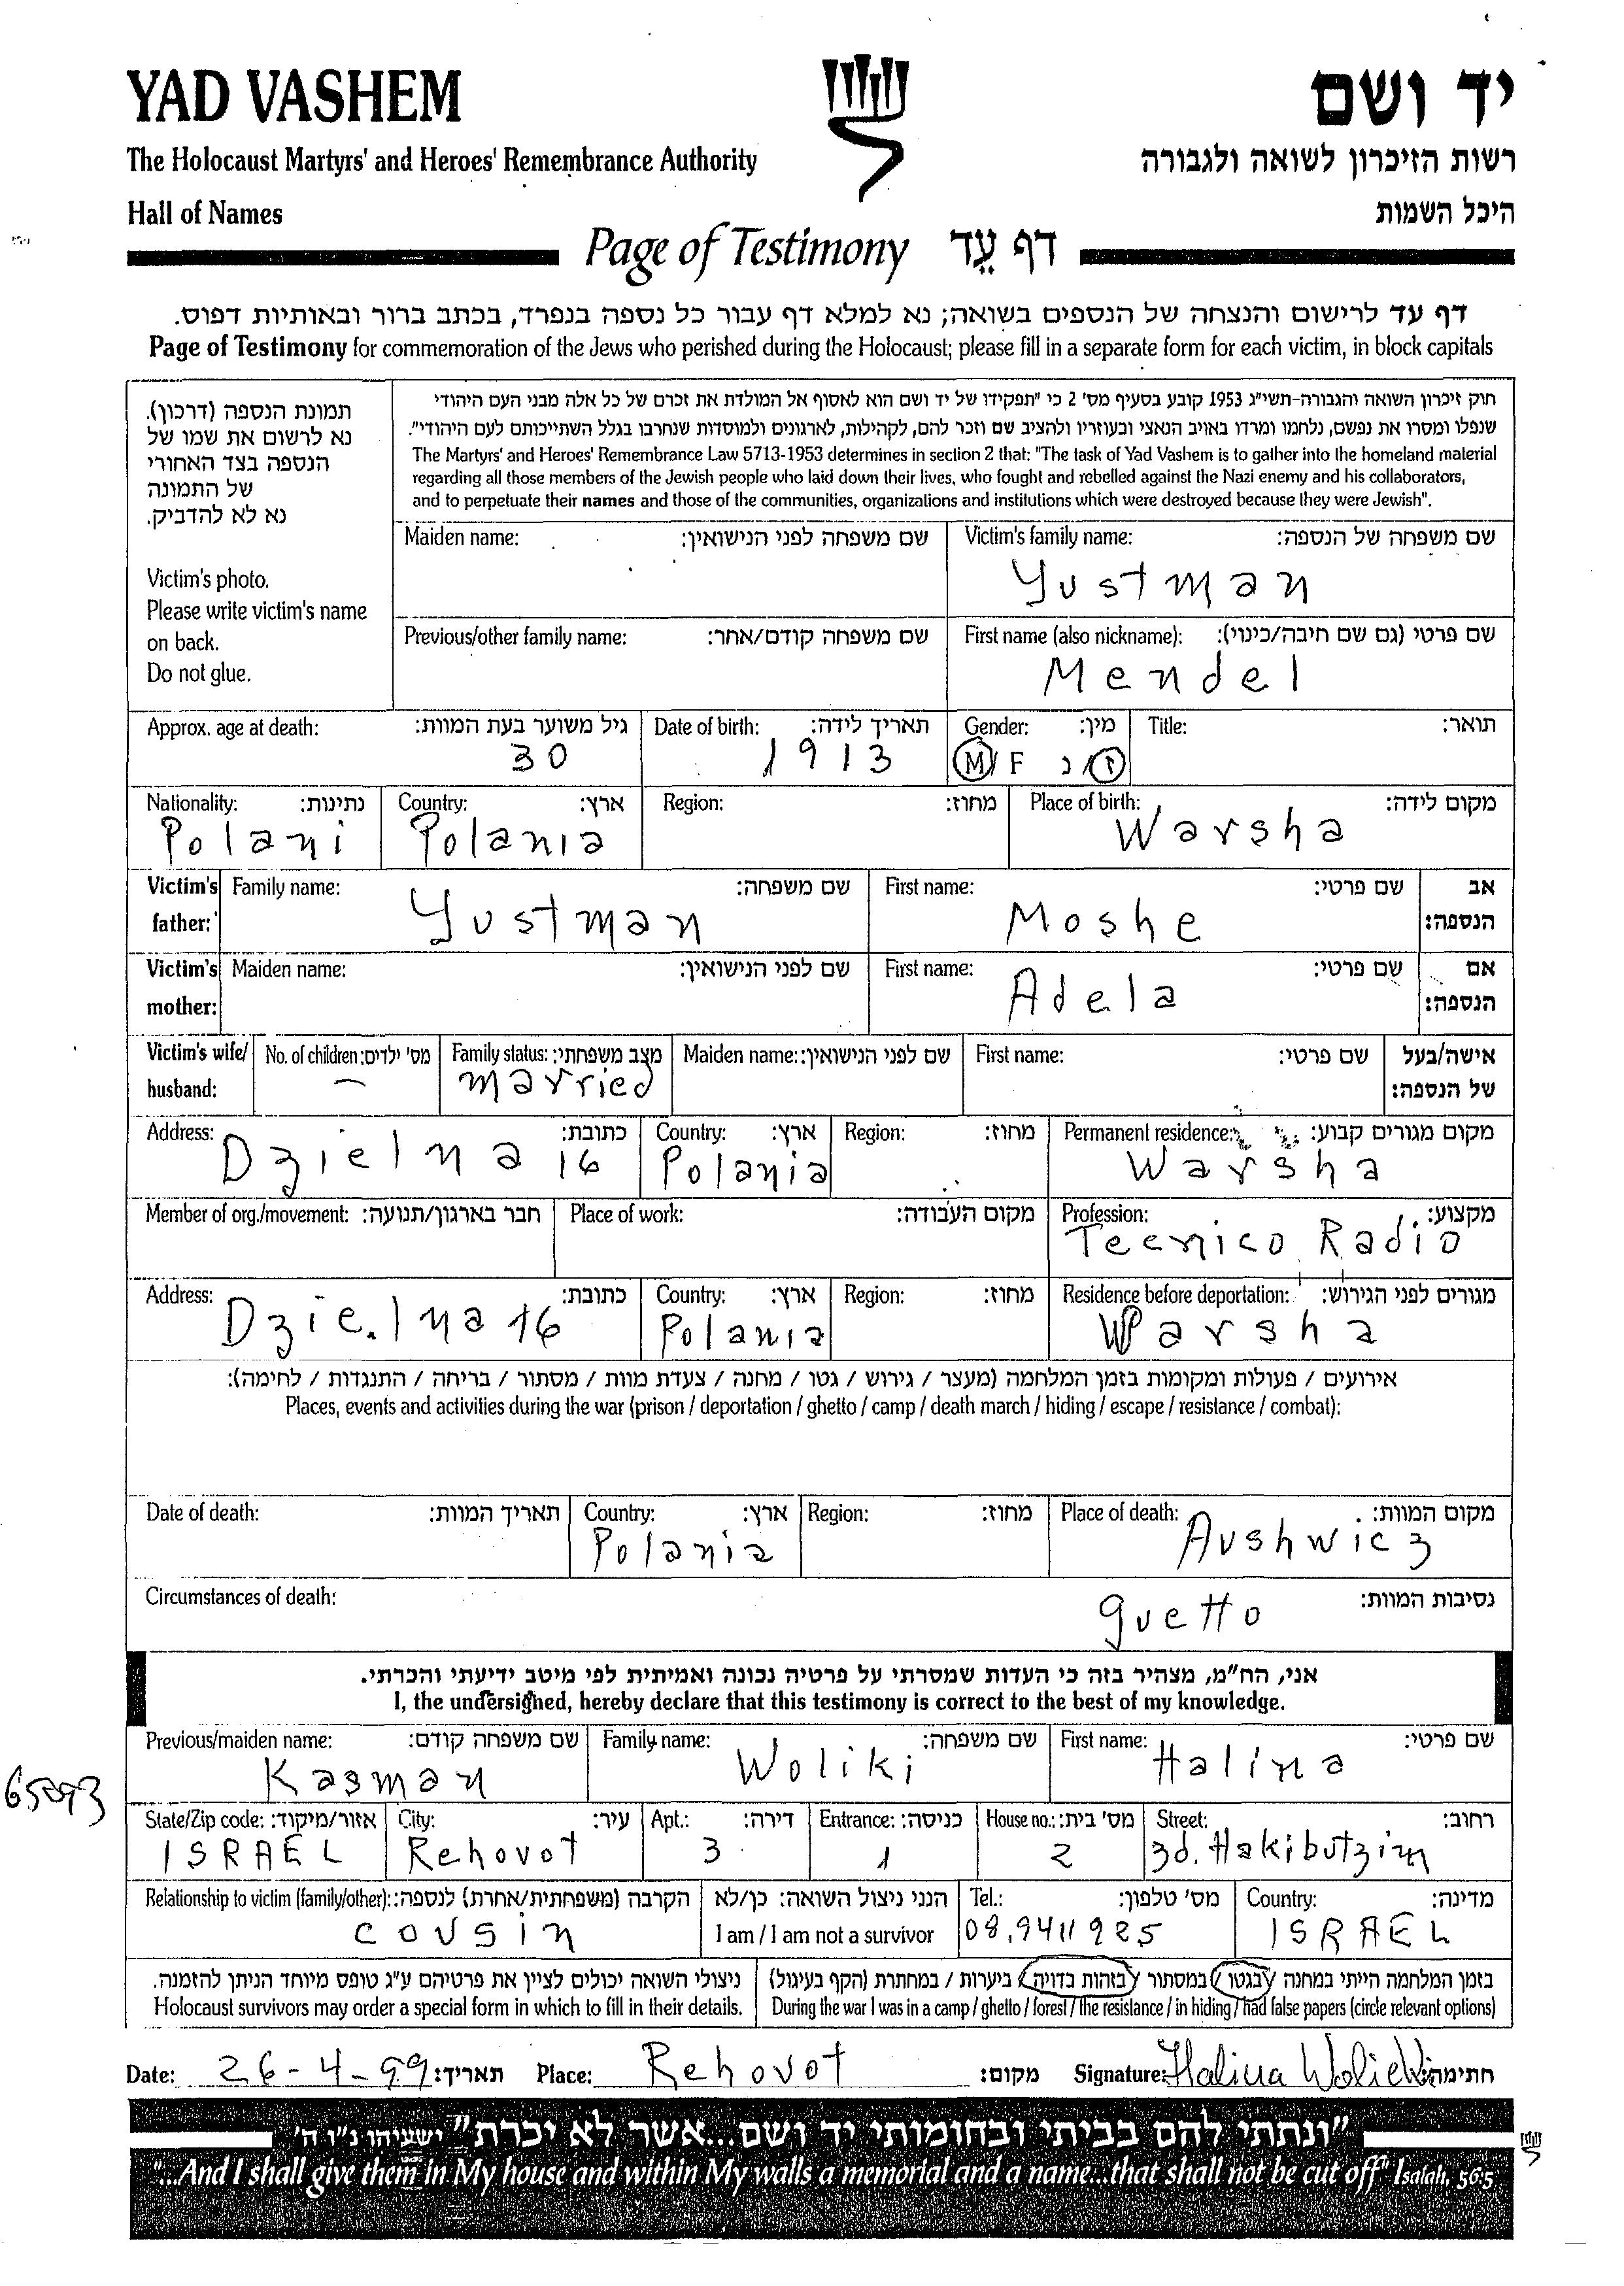 YAD VASHEM
יד ושם
The Holocaust Martyrs' and Heroes' Remembrance Authority
רשות הזיכרון לשואה ולגבורה
Hall of Names
היכל השמות
Page of Testimony דף עֵד
דף עד לרישום והנצחה של הנספים בשואה; נא למלא דף עבור כל נספה בנפרד, בכתב ברור ובאותיות דפוס.
Page of Testimony for commemoration of the Jews who perished during the Holocaust; please fill in a separate form for each victim, in block capitals
תמונת הנספה (דרכון).
נא לרשום את שמו של
הנספה בצד האחורי
של התמונה
נא לא להדביק.
Victim's photo.
Please write victim's name
on back.
Do not glue.
חוק זיכרון השואה והגבורה-תשי"ג 1953 קובע בסעיף מס' 2 כי "תפקידו של יד ושם הוא לאסוף אל המולדת את זכרם של כל אלה מבני העם היהודי
שנפלו ומסרו את נפשם, נלחמו ומרדו באויב הנאצי ובעוזריו ולהציב שם וזכר להם, לקהילות, לארגונים ולמוסדות שנחרבו בגלל השתייכותם לעם היהודי".
The Martyrs' and Heroes' Remembrance Law 5713-1953 determines in section 2 that: "The task of Yad Vashem is to gather into the homeland material
regarding all those members of the Jewish people who laid down their lives, who fought and rebelled against the Nazi enemy and his collaborators,
and to perpetuate their names and those of the communities, organizations and institutions which were destroyed because they were Jewish".
Maiden name: שם משפחה לפני הנישואין: Victim's family name: שם משפחה של הנספה:
Yustman
Previous/other family name: שם משפחה קודם/אחר: First name (also nickname): שם פרטי (גם שם חיבה/כינוי):
Mendel
Approx. age at death: גיל משוער בעת המוות: Date of birth: תאריך לידה: Gender: מין: Title: תואר:
30 1913 M/F ז/נ
Nationality: נתינות: Country: ארץ: Region: מחוז: Place of birth: מקום לידה:
Polani Polania Warsha
Victim's father: Family name: שם משפחה: First name: שם פרטי: אב הנספה:
Yustman Moshe
Victim's mother: Maiden name: שם לפני הנישואין: First name: שם פרטי: אם הנספה:
Adela
Victim's wife/ husband: No. of children: מס' ילדים: Family status: מצב משפחתי: Maiden name: שם לפני הנישואין: First name: שם פרטי: אישה/בעל של הנספה:
— married
Address: כתובת: Country: ארץ: Region: מחוז: Permanent residence: מקום מגורים קבוע:
Dzielna 16 Polania Warsha
Member of org./movement: חבר בארגון/תנועה: Place of work: מקום העבודה: Profession: מקצוע:
Tecnico Radio
Address: כתובת: Country: ארץ: Region: מחוז: Residence before deportation: מגורים לפני הגירוש:
Dzielna 16 Polania Warsha
אירועים / פעולות ומקומות בזמן המלחמה (מעצר / גירוש / גטו / מחנה / צעדת מוות / מסתור / בריחה / התנגדות / לחימה):
Places, events and activities during the war (prison / deportation / ghetto / camp / death march / hiding / escape / resistance / combat):
Date of death: תאריך המוות: Country: ארץ: Region: מחוז: Place of death: מקום המוות:
Polania Aushwicz
Circumstances of death: נסיבות המוות:
guetto
אני, הח"מ, מצהיר בזה כי העדות שמסרתי על פרטיה נכונה ואמיתית לפי מיטב ידיעתי והכרתי.
I, the undersigned, hereby declare that this testimony is correct to the best of my knowledge.
Previous/maiden name: שם משפחה קודם: Family name: שם משפחה: First name: שם פרטי:
Kasman Woliki Halina
65093
State/Zip code: אזור/מיקוד: City: עיר: Apt.: דירה: Entrance: כניסה: House no.: מס' בית: Street: רחוב:
ISRAEL Rehovot 3 1 2 3d. Hakibutzim
Relationship to victim (family/other): הקרבה (משפחתית/אחרת) לנספה: הנני ניצול השואה: כן/לא Tel.: מס' טלפון: Country: מדינה:
cousin I am / I am not a survivor 08.9411925 ISRAEL
ניצולי השואה יכולים לציין את פרטיהם ע"ג טופס מיוחד הניתן להזמנה.
Holocaust survivors may order a special form in which to fill in their details.
בזמן המלחמה הייתי במחנה / בגטו / במסתור / בזהות בדויה / ביערות / במחתרת (הקף בעיגול)
During the war I was in a camp / ghetto / forest / the resistance / in hiding / had false papers (circle relevant options)
Date: 26-4-99 תאריך: Place: Rehovot מקום: Signature: Halina חתימה:
"ונתתי להם בביתי ובחומותי יד ושם...אשר לא יכרת" ישעיהו נ"ו ה'
"...And I shall give them in My house and within My walls a memorial and a name...that shall not be cut off" Isaiah, 56:5